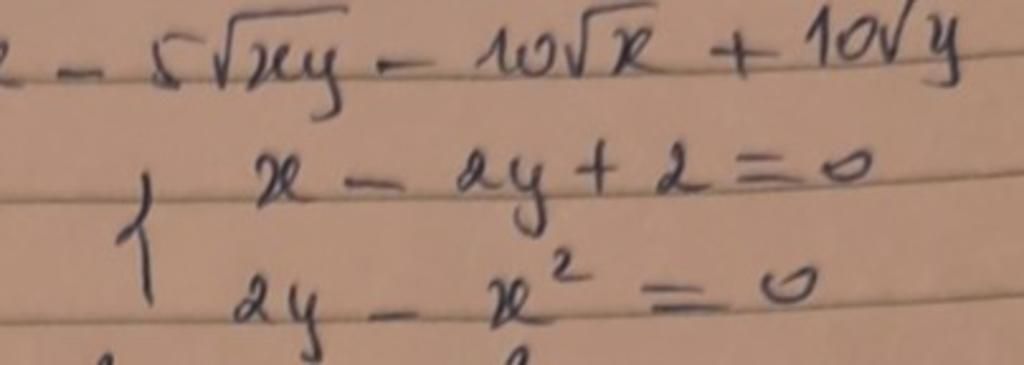 - 5√xy - 10√x + 10√y
{ x - 2y + 2 = 0
2y - x² = 0